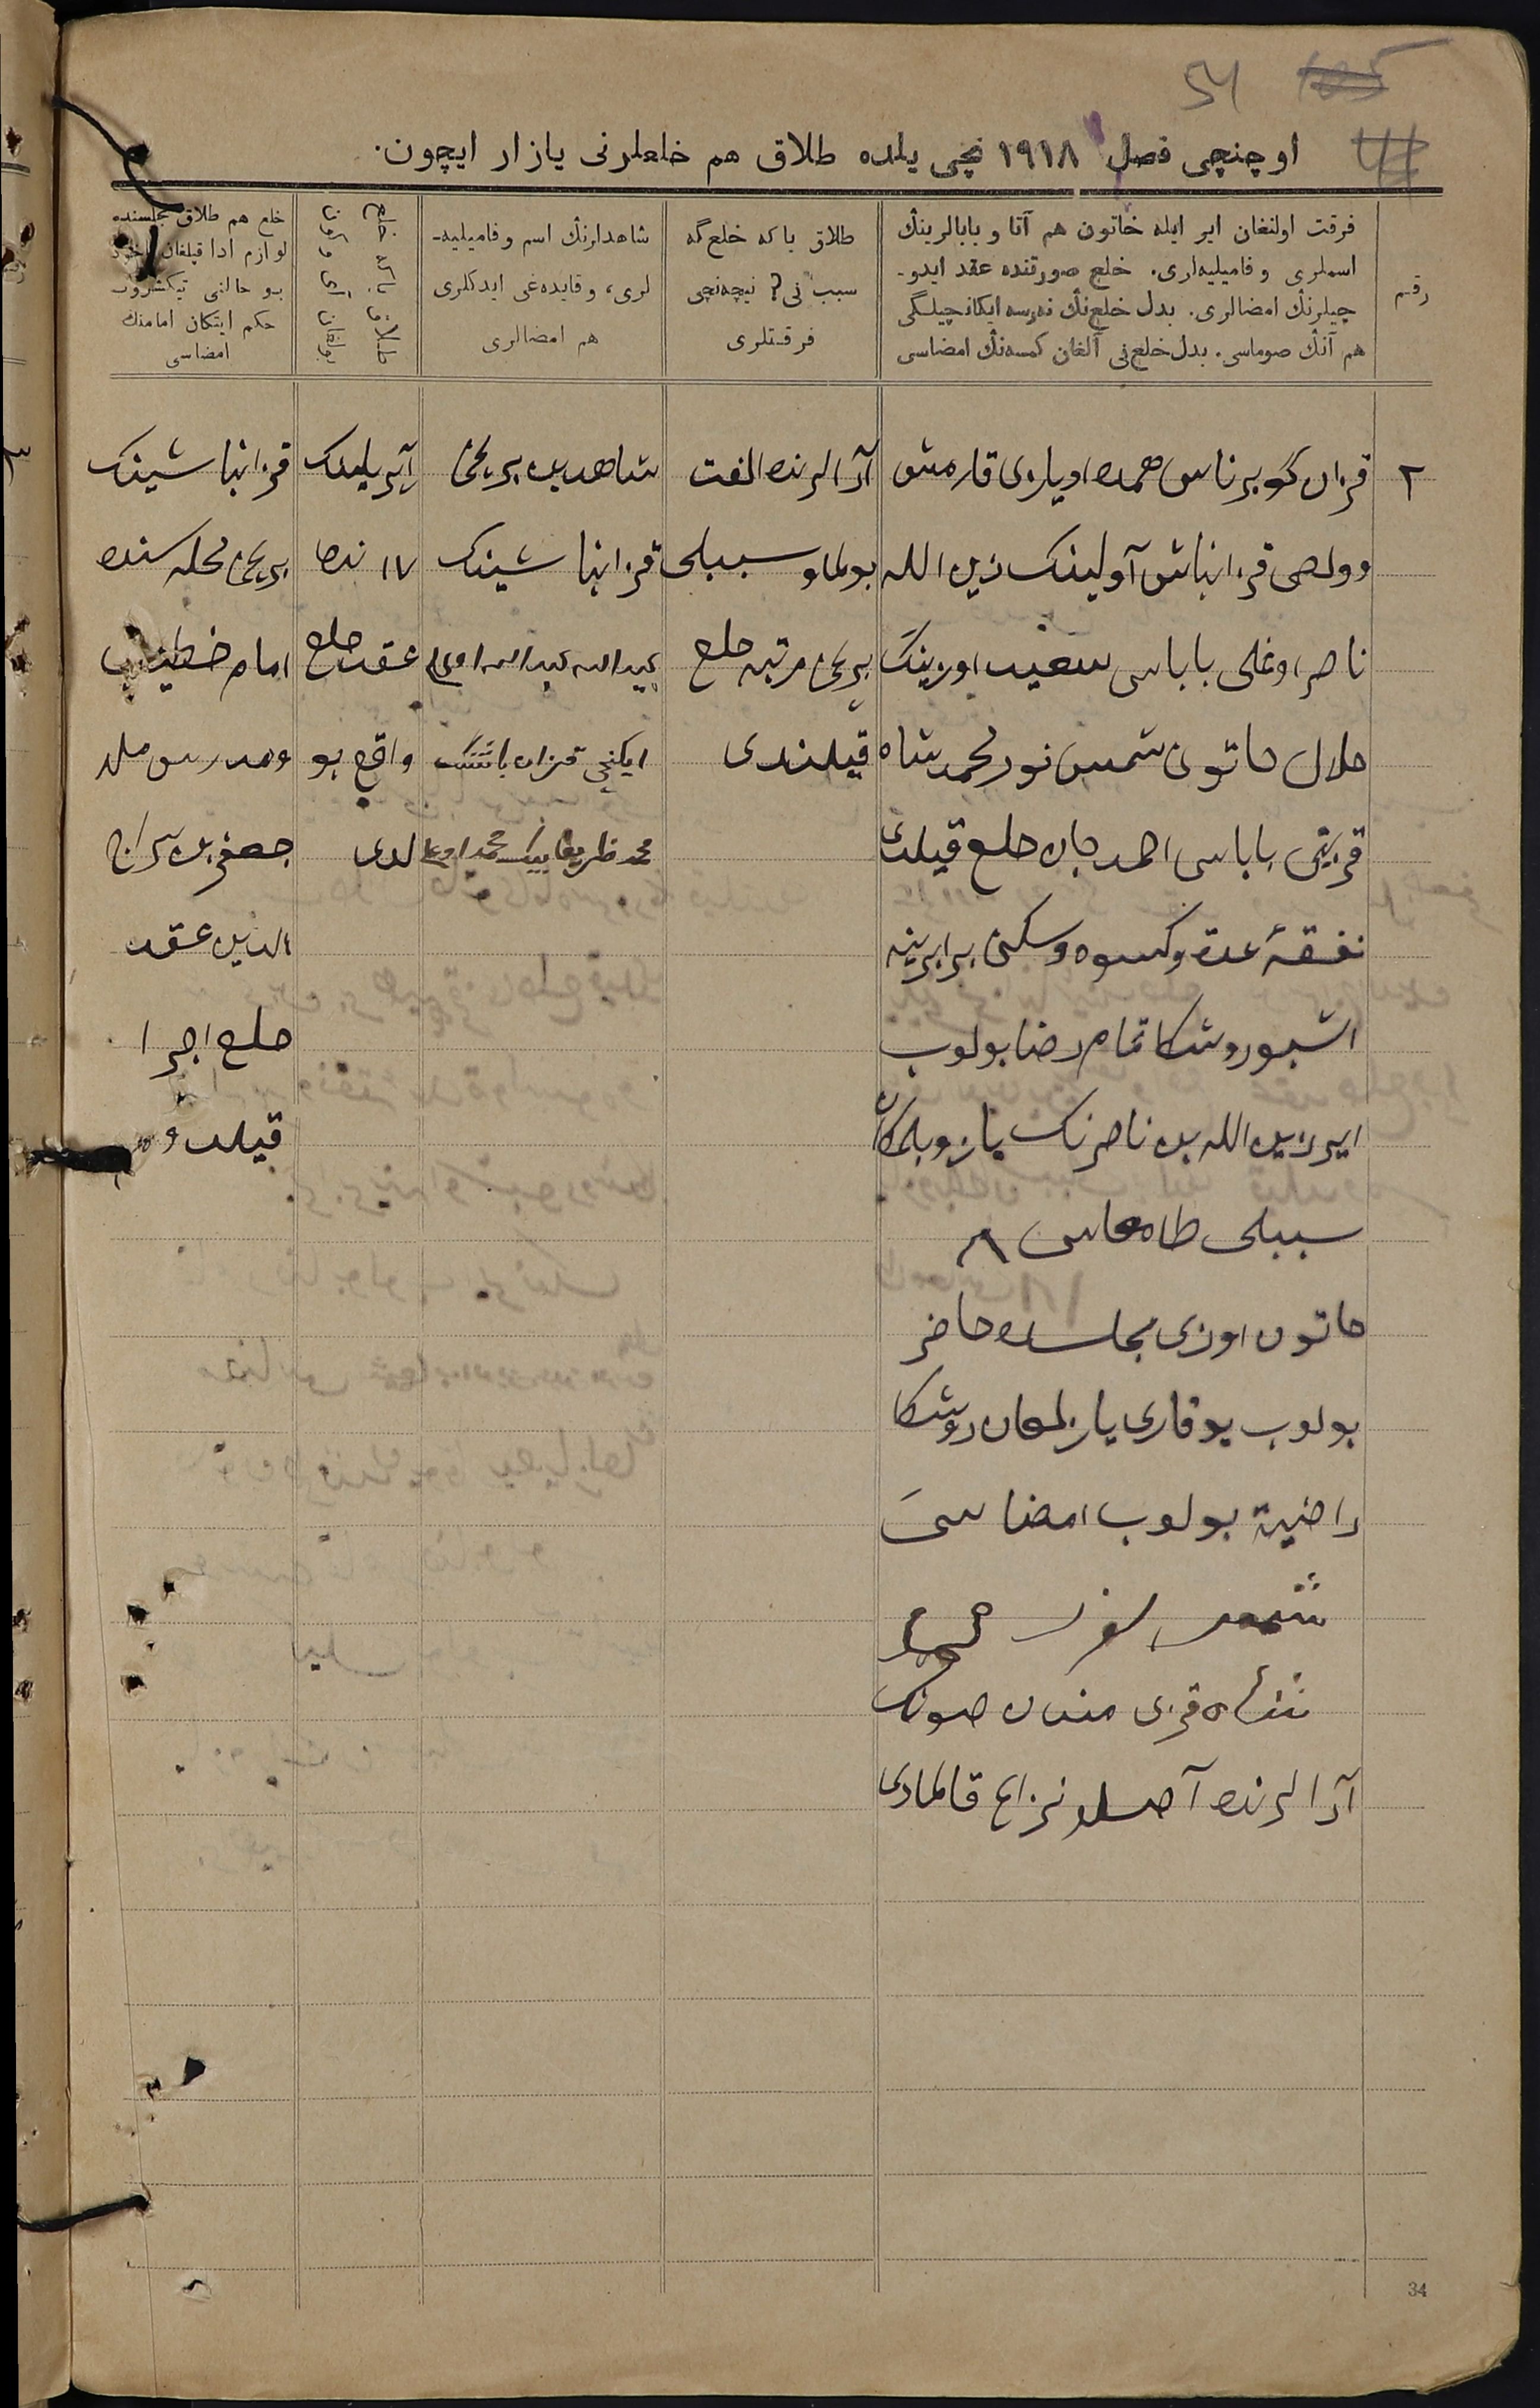 54
اوچنچی فصل ١٩١٨ نچی یلده طلاق هم خلعلرنی یازار ایچون.
رقم
فرقت اولنغان ایر ایله خاتون هم آتا و بابالرینڭ
اسملری و فامیلیه‌لری. خلع صورتنده عقد ایدو-
چیلرنڭ امضالری. بدل خلع‌نڭ نه‌رسه ایکانچیلگی
هم آنڭ صوماسی. بدل خلع‌نی آلغان کمسه‌نڭ امضاسی
طلاق یا که خلع گه
سبب نی؟ نیچه‌نچی
فرقتلری
شاهدلرنڭ اسم و فامیلیه-
لری، و قایده‌غی ایدکلری
هم امضالری
خلع هم طلاق مجلسنده
لوازم ادا قیلغان
بو حالنی تیکشروب
حکم ایتکان امامنڭ
امضاسی
٢
قزان گوبرناس همده اویازی قارمش
وولصی قزانباش آولینک زین الله
ناصر اوغلی باباسی سعید اوزینک
حلال خاتونی شمس نور محمدشاه
قزیتی باباسی احمدجان خلع قیلدی
نفقهٔ عدة وکسوه وسکنی برابرینه
اشبو روشکا تمام رضا بولوب
ایر زین الله بن ناصرنک یازو بلمکان
سببلی طامغاسی ٨
خاتون اوزی مجلسده حاضر
بولوب یوقاری یازلغان روشکا
راضیة بولوب امضاسی
شمس نور محمد
شاه قزی مندن صونک
آرالرنده آصلا نزاع قالمادی
آرالرنده الفت
بولماو سببلی
برنچی مرتبه خلع
قیلندی
شاهدین برنچی
قزانباشینک
عبیدالله عبدالله اوغلی
ایکنچی قزانباشنک
محمد ظریف بیک محمد اوغلی
آپریلینک
١٧ نده
عقد خلع
واقع بو
لدی
قزانباشینک
برنچی محله سنده
امام خطیب
ومدرس ملا
جعفر بن سراج
الدین عقد
خلع اجرا
قیلدم
34